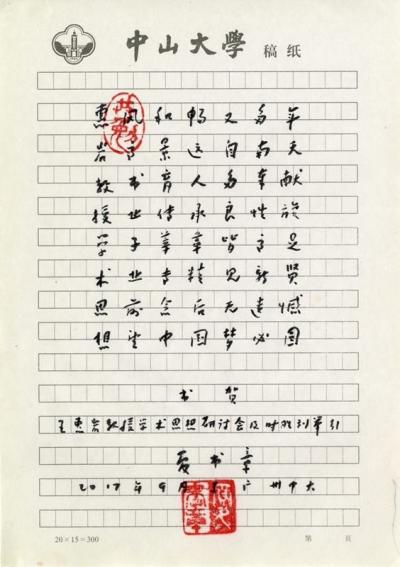 中山大學 稿纸
惠风和畅又多年
岩高景这自南天
教书育人多奉献
授业传承良性旋
学子莘莘皆高足
术业专精见新贤
思前念后无遗憾
想望中国梦必圆
书贺
王惠岩教授学术思想研讨会及时胜利举行
夏书章
2017年9月 广州中大
20×15=300 第 页